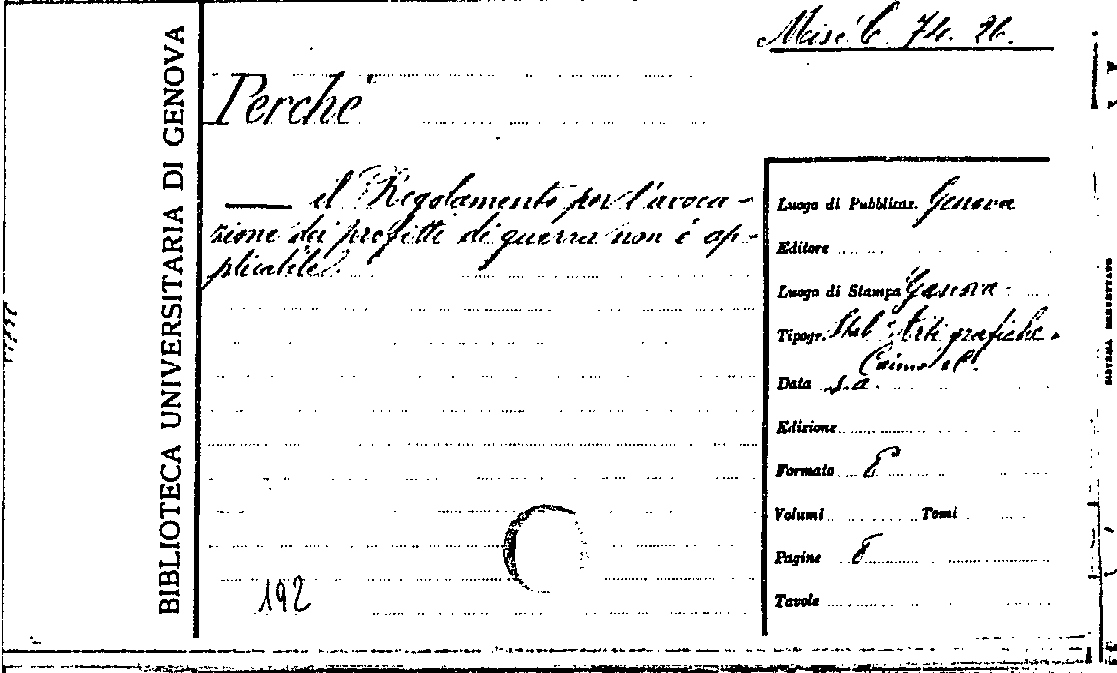 BIBLIOTECA UNIVERSITARIA DI GENOVA
Misc. C. 74. 26.
Perché
il Regolamento per l'avoca-
zione dei profitti di guerra non è ap-
plicabile.
Luogo di Pubblicaz. Genova
Editore
Luogo di Stampa Genova
Tipogr. Stab. Arti grafiche
Caimo e C.
Data s.a.
Edizione
Formato 8
Volumi Tomi
Pagine 8
Tavole
192